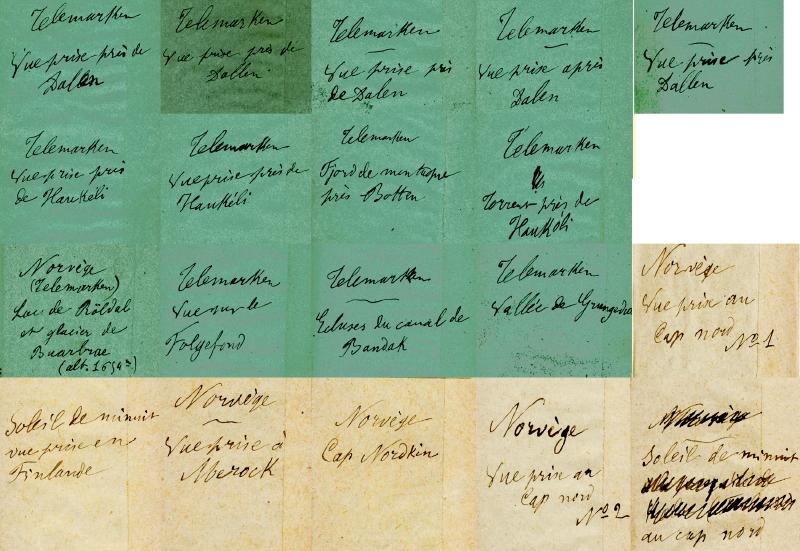 Telemarken
Vue prise près de
Dalen
Telemarken
Vue prise près de
Dallen
Telemarken
Vue prise près
de Dalen
Telemarken
Vue prise après
Dalen
Telemarken
Vue prise près
Dallen
Telemarken
Vue prise près
de Haukéli
Telemarken
Vue prise près de
Haukéli
Telemarken
Fjord de montagne
près Botten
Telemarken
Torrent près de
Haukéli
Norvège
(Telemarken)
Lac de Röldal
et glacier de
Buarbrae
(alt. 1654m)
Telemarken
Vue sur le
Folgefond
Telemarken
Ecluses du canal de
Bandak
Telemarken
Vallée de
Norvège
Vue prise au
Cap nord
No 1
Soleil de minuit
vue prise en
Finlande
Norvège
Vue prise à
Aberock
Norvège
Cap Nordkin
Norvège
Vue prise au
Cap nord
No 2
Soleil de minuit
au cap nord